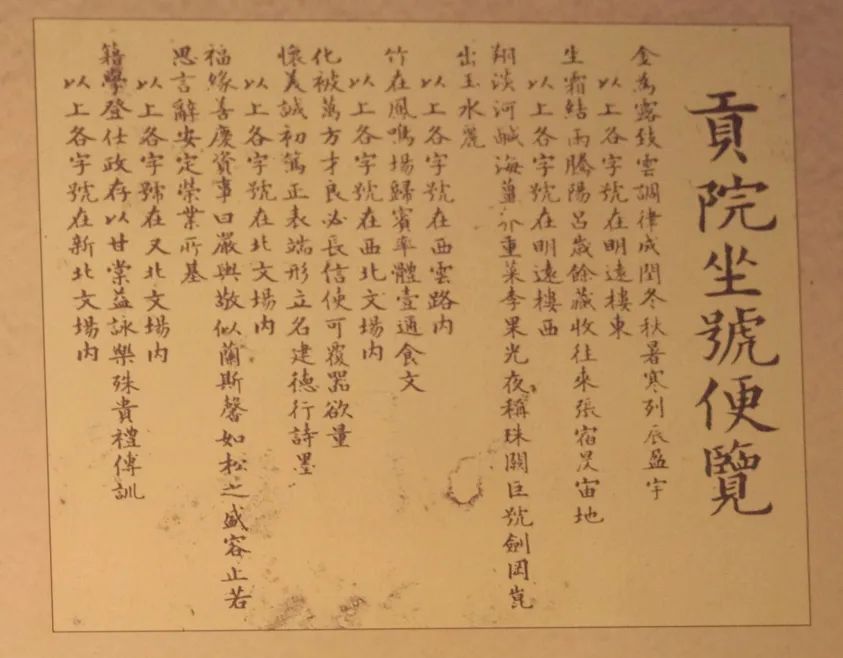 貢院坐號便覽
金為露致雲調律成閏冬秋暑寒列辰盈宇
以上各字號在明遠樓東
生霜結雨騰陽呂歲餘藏收往來張宿昃宙地
以上各字號在明遠樓西
翔淡河鹹海薑介重菜李果光夜稱珠闕巨號劍岡崑
出玉水麗
以上各字號在西雲路內
竹在鳳鳴場歸賓率體壹通食文
以上各字號在西北文場內
化被萬方才良必長信使可覆器欲量
懷美誠初篤正表端形立名建德行詩墨
以上各字號在北文場內
福緣善慶資事曰嚴與敬似蘭斯馨如松之盛容止若
思言辭安定榮業所基
以上各字號在又北文場內
籍學登仕政存以甘棠益詠樂殊貴禮傅訓
以上各字號在新北文場內